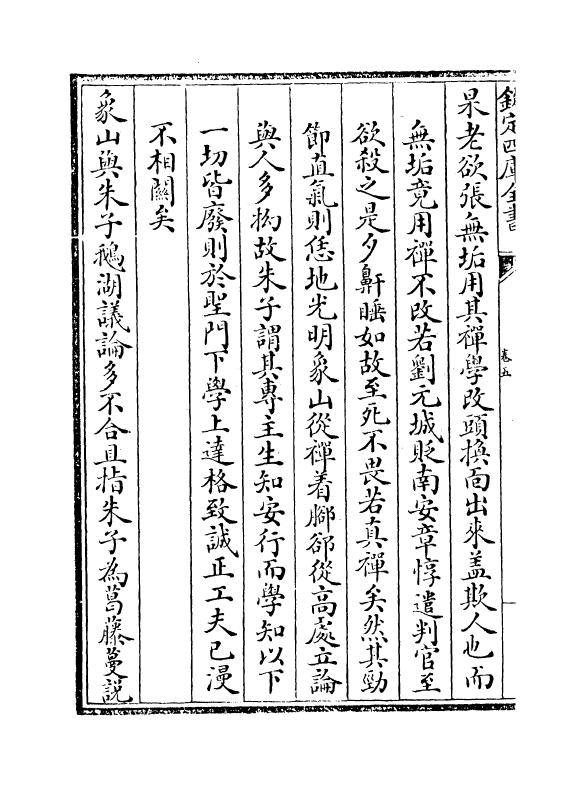 欽定四庫全書
卷五
杲老欲張無垢用其禪學改頭換面出來盖欺人也而
無垢竟用禪不改若劉元城貶南安章惇遣判官至
欲殺之是夕鼾睡如故至死不畏若真禪矣然其勁
節直氣則恁地光明象山從禪着腳郤從高處立論
與人多拗故朱子謂其專主生知安行而學知以下
一切皆廢則於聖門下學上達格致誠正工夫已漫
不相關矣
象山與朱子鵝湖議論多不合且指朱子為葛藤蔓説